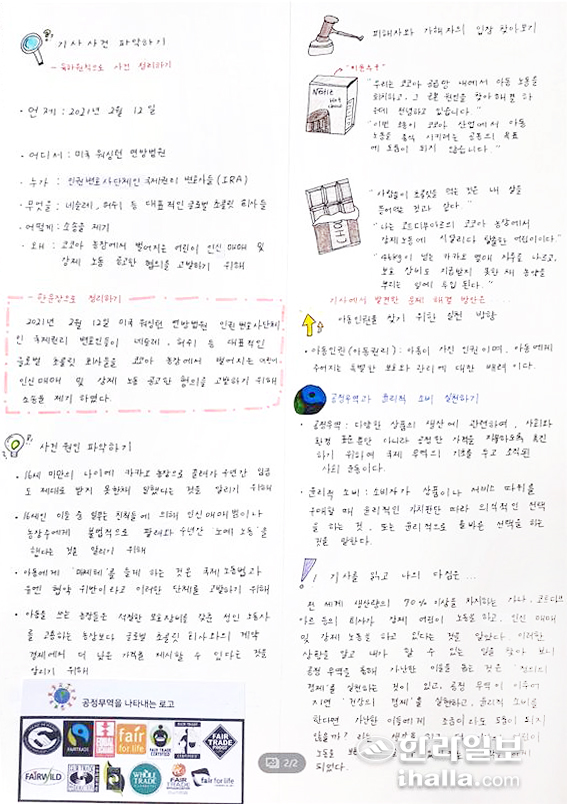 기사 사건 파악하기
- 육하원칙으로 사건 정리하기
· 언제 : 2021년 2월 12일
· 어디서 : 미국 워싱턴 연방법원
· 누가 : 인권변호사단체인 국제권리 변호사들 (IRA)
· 무엇을 : 네슬레, 허쉬 등 대표적인 글로벌 초콜릿 회사들
· 어떻게 : 소송을 제기
· 왜 : 코코아 농장에서 벌어지는 어린이 인신매매 및
강제 노동 공고한 혐의를 고발하기 위해
- 한문장으로 정리하기
2021년 2월 12일 미국 워싱턴 연방법원 인권변호사단체
인 국제권리 변호인들이 네슬레, 허쉬 등 대표적인
글로벌 초콜릿 회사들을 코코아 농장에서 벌어지는 어린이
인신매매 및 강제 노동 공고한 혐의를 고발하기 위해
소송을 제기 하였다.
사건 원인 파악하기
· 16세 미만의 나이에 카카오 농장으로 끌려가 수년간 임금
도 제대로 받지 못한채 일했다는 것을 알리기 위해
· 16세인 이들 중 일부는 친척들에 의해 인신매매범이나
농장주에게 불법적으로 팔려와 수년간 '노예 노동'을
했다는 것을 알리기 위해
· 아동에게 '마체테'를 들게 하는 것은 국제 노동법과
유엔 협약 위반이라고 이러한 단체를 고발하기 위해
· 아동을 쓰는 농장들은 적정한 보호장비를 갖춘 성인 노동자
를 고용하는 농장보다 글로벌 초콜릿 회사와의 계약
경쟁에서 더 낮은 가격을 제시할 수 있다는 것을
알리기 위해
공정무역을 나타내는 로고
FAIRTRADE
fair for life
FAIR TRADE CERTIFIED
FAIR TRADE
FAIRWILD
WHOLE TRADE
FAIR TRADE
fair for life
피해자와 가해자의 입장 찾아보기
"우리는 코코아 공급망 내에서 아동 노동을
퇴치하고, 그 근본 원인을 찾아 해결 하
는데 전념하고 있습니다."
"이번 소송이 코코아 산업에서 아동
노동을 종식 시키려는 공동의 목표
에 도움이 되지 않습니다."
"사람들이 초콜릿을 먹는 것은 내 살을
뜯어먹는 것과 같다"
"나는 코트디부아르의 코코아 농장에서
강제노동에 시달리다 탈출한 어린이이다."
기사에서 발견한 문제 해결 방안은 ...
아동인권을 찾기 위한 실천 방향
· 아동인권 (아동권리) : 아동이 가진 인권이며, 아동에게
주어지는 특별한 보호와 관리에 대한 배려이다.
공정무역과 윤리적 소비 실천하기
· 공정무역 : 다양한 상품의 생산에 관련하여, 사회와
환경 표준뿐만 아니라 공정한 가격을 지불하도록 촉진
하기 위하여 국제 무역의 기초를 두고 조직된
사회 운동이다.
· 윤리적 소비 : 소비자가 상품이나 서비스 따위를
구매할 때 윤리적인 가치판단 따라 의식적인 선택
을 하는 것, 또는 윤리적으로 올바른 선택을 하는
것을 말한다.
기사를 읽고 나의 다짐은 ...
전 세계 생산량의 70% 이상을 차지하는 가나, 코트디브
아르 등의 회사가 강제 어린이 노동을 하고, 인신 매매
및 강제 노동을 하고 있다는 것을 알았다. 이러한
상황을 알고 내가 할 수 있는 일을 찾아 보니
공정 무역을 통해 가난한 이들을 돕는 것은 '정의의
경제'를 실천하는 것이 있고, 공정 무역이 이루어
지면 '건강의 경제'를 실현하고, 윤리적 소비를
한다면 가난한 이들에게 조금이라도 도움이 되지
않을까?
되었다.
2/2
한라일보
ihalla.com